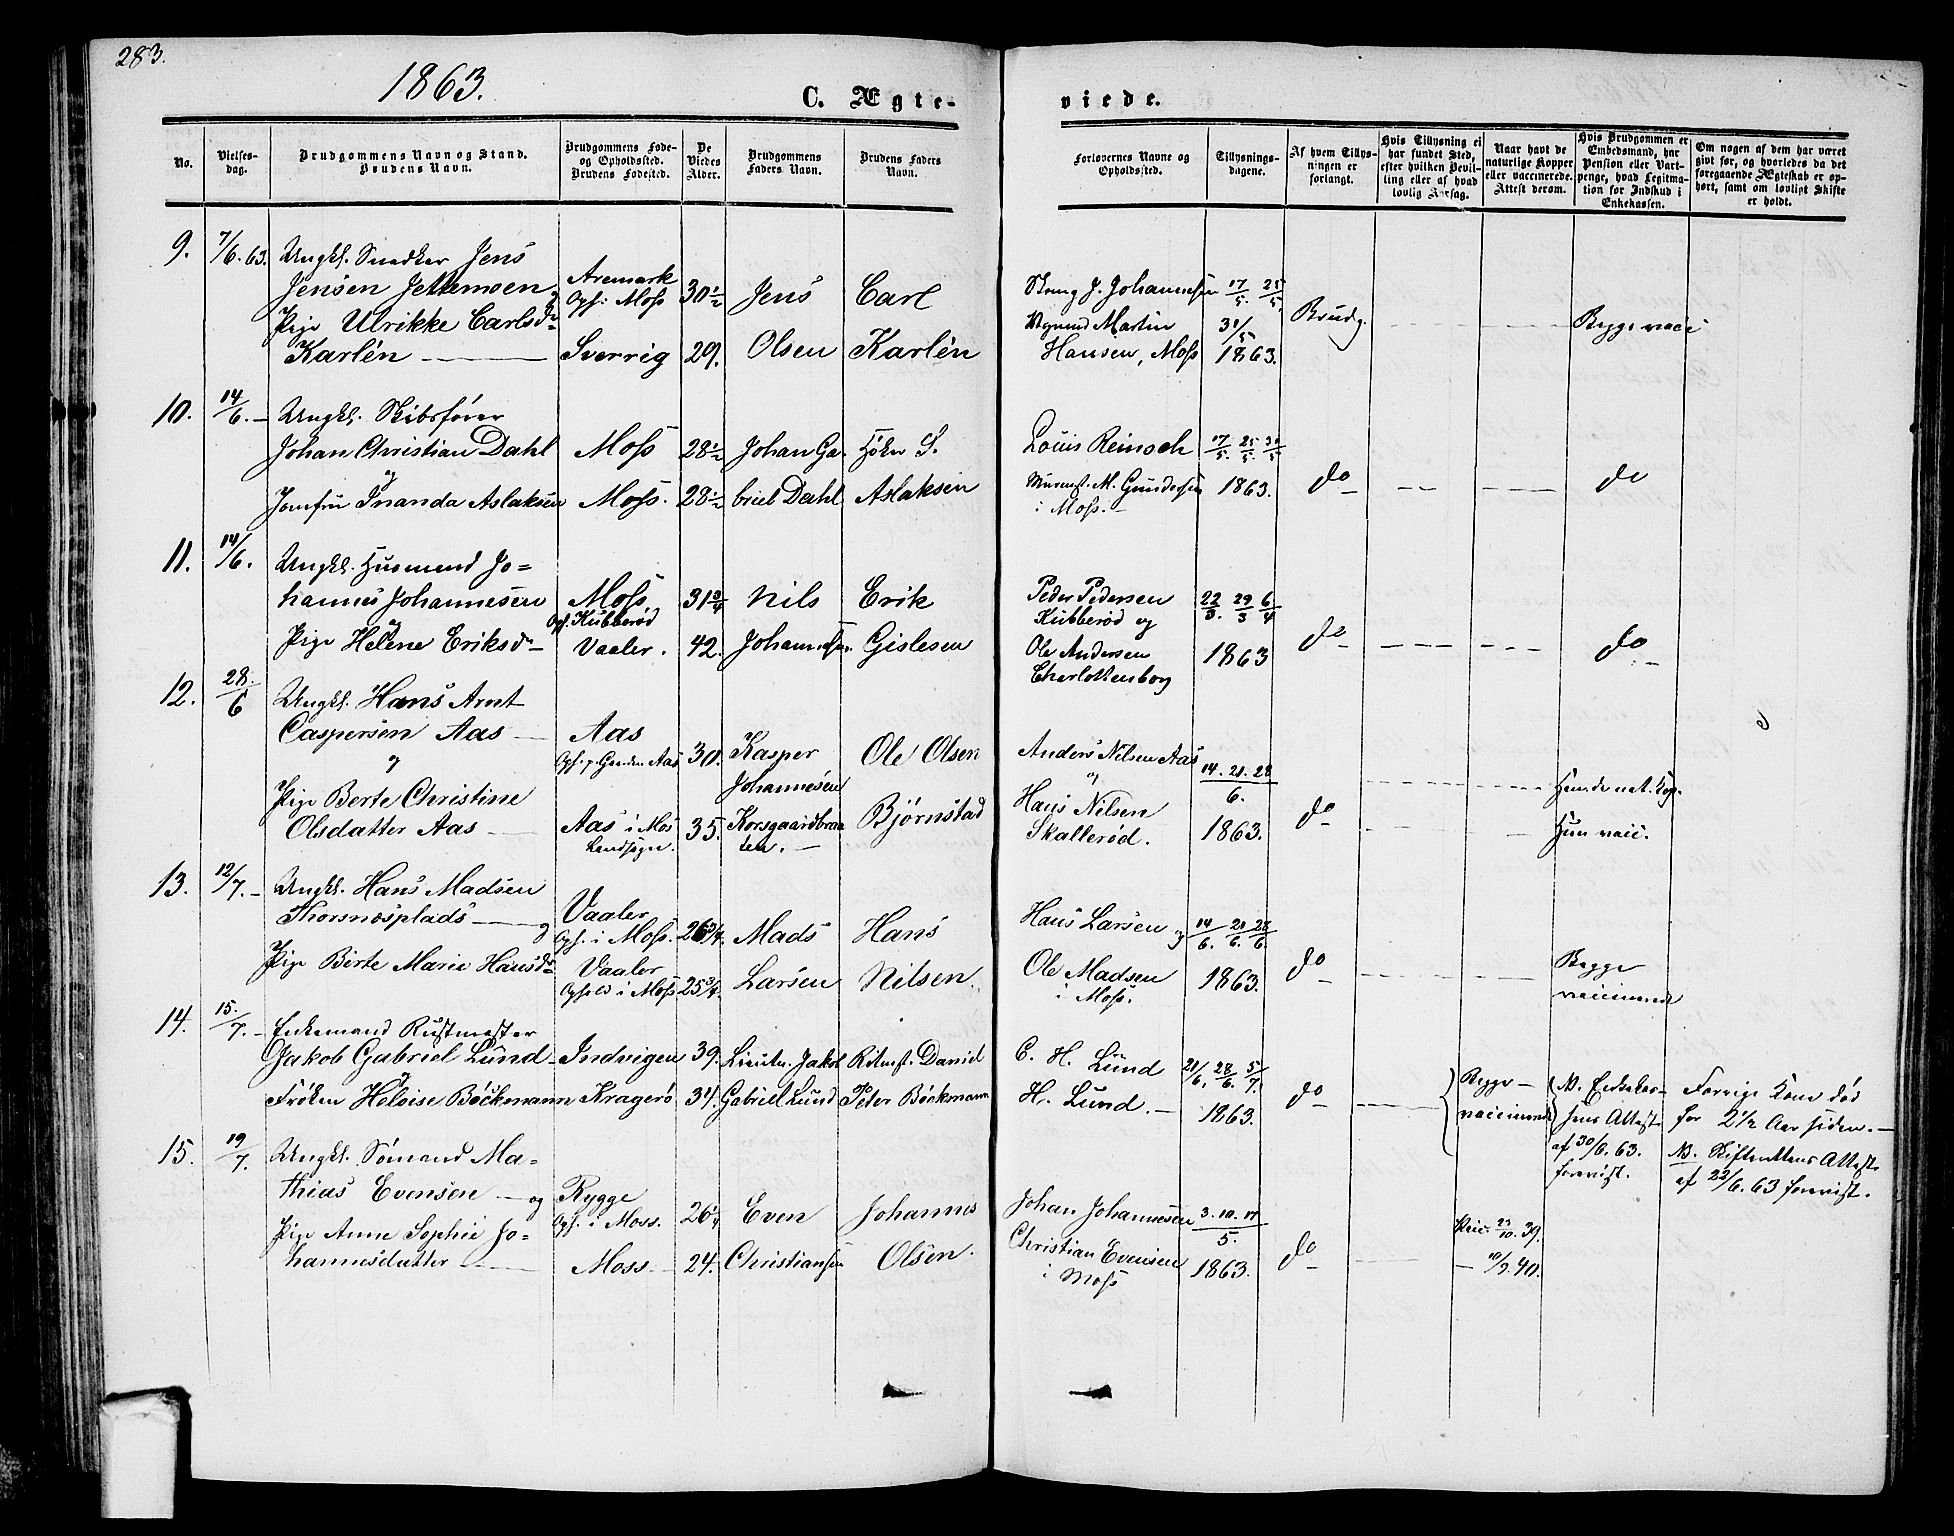 283.
1863.
C. Ægte-
viede.
No.
Vielses-
dag.
Brudgommens Navn og Stand.
Brudens Navn.
Brudgommens Føde-
og Opholdssted.
Brudens Fødested.
De
Viedes
Alder.
Brudgommens
Faders Navn.
Brudens Faders
Navn.
Forlovernes Navne og
Opholdssted.
Tillysnings-
dagene.
Af hvem Tillys-
ningen er
forlangt.
Hvis Tillysning ei
har fundet Sted,
efter hvilken Bevil-
ling eller af hvad
lovlig Aarsag.
Naar havt de
naturlige Kopper
eller vaccinerede.
Attest derom.
Hvis Brudgommen er
Embedsmand, har
Pension eller Vart-
penge, hvad Legitima-
tion for Indskud i
Enkekassen.
Om nogen af dem har været
gift før, og hvorledes da det
foregaaende Ægteskab er op-
hørt, samt om lovligt Skifte
er holdt.
9. 7/6. 63. Ungkl. Snedker Jens
Jensen Jettemsen Aremark 30 1/2 Jens Carl
og Opf: Moss
Pige Ulrikke Carlsdr
Karlén Sverrig 29. Olsen Karlén
J. Johannesen 17/5. 25/5.
Martin 31/5 Brudg. Begge vacc
Hansen, Moss 1863.
10. 14/6. Ungkl. Skibsfører
Johan Christian Dahl Moss 28 1/2 Johan Ga- Høker S.
og
Jomfru Inanda Aslaksen Moss. 28 1/2 briel Dahl Aslaksen
Louis Reinsch 17/5. 25/5. 31/5
Murmst. M. Gundersen 1863. do do
i Moss.
11. 14/6. Ungkl. Husmand Jo-
hannes Johannesen Moss 31 3/4 Nils Erik
og Opf. Kubberød
Pige Helene Eriksdr Vaaler. 42. Johannesen Gislesen
Peder Pedersen 22/3. 29/3 6/4
Kubberød og
Ole Andersen 1863 do do
Charlottenborg
12. 28/6 Ungkl. Hans Arnt
Caspersen Aas Aas 30. Kasper Ole Olsen
og Opf. p. Gaarden Aas Johannesen
Pige Berte Christine
Olsdatter Aas Aas i Mos 35. Korsgaardbraa- Bjørnstad
Landsogn. ten.
Anders Nilsen Aas 14. 21. 28
og 6.
Hans Nilsen do Han de nat. Kop.
Skallerød. 1863. Hun vacc.
13. 12/7. Ungkl. Hans Madsen
Thorsnæsplads og Vaaler 26 3/4. Mads Hans
Opf. i Moss.
Pige Berte Marie Hansdr Vaaler 25 3/4. Larsen Nilsen.
Ophold i Moss
Hans Larsen og 14/6. 21/6. 28/6.
Ole Madsen 1863. do Begge
i Moss. vaccinerede
14. 15/7. Enkemand Rustmester
Jakob Gabriel Lund Indvigen 39. Lieutn. Jakob Ritmst. Daniel
og
Frøken Heloise Bøckmann Kragerø 34. Gabriel Lund Peter Bøckmann
C. H. Lund 21/6. 28/6. 5/7. Begge
H. Lund. 1863. do vaccinerede
N. Enkekas-
sens Attest
af 30/6. 63.
forevist.
Forrige Kone død
for 2 1/2 Aar siden.
NB. Skifterettens Attest
af 22/6. 63 forevist.
15. 19/7. Ungkl. Sømand Ma-
thias Evensen og Rygge 26 1/4 Even Johannes
Opf. i Moss.
Pige Anne Sophie Jo-
hannesdatter Moss. 24. Christiansen Olsen.
Johan Johannesen 3. 10. 17
5.
Christian Evensen 1863. do
i Moss
Vacc. 23/10. 39.
10/9. 40.